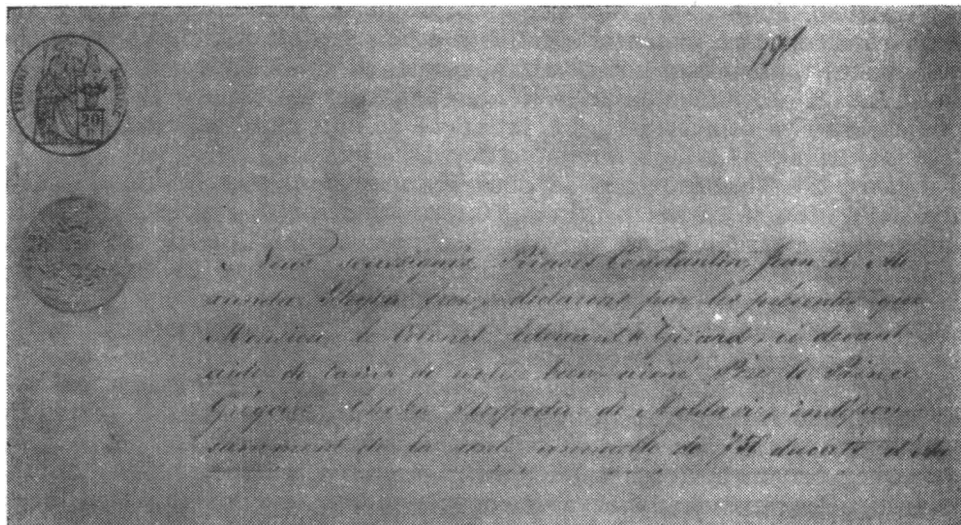 TIMBRE IMPERIAL
20
Nous soussignés, Princes Constantin, Jean et
Ghyka frères, déclarons par les présentes que
Monsieur le Colonel Girard, ci devant
aide de camp de notre bien-aimé Père le Prince
Grégoire Ghyka Hospodar de Moldavie, indépen-
damment de la rente annuelle de 750 ducats